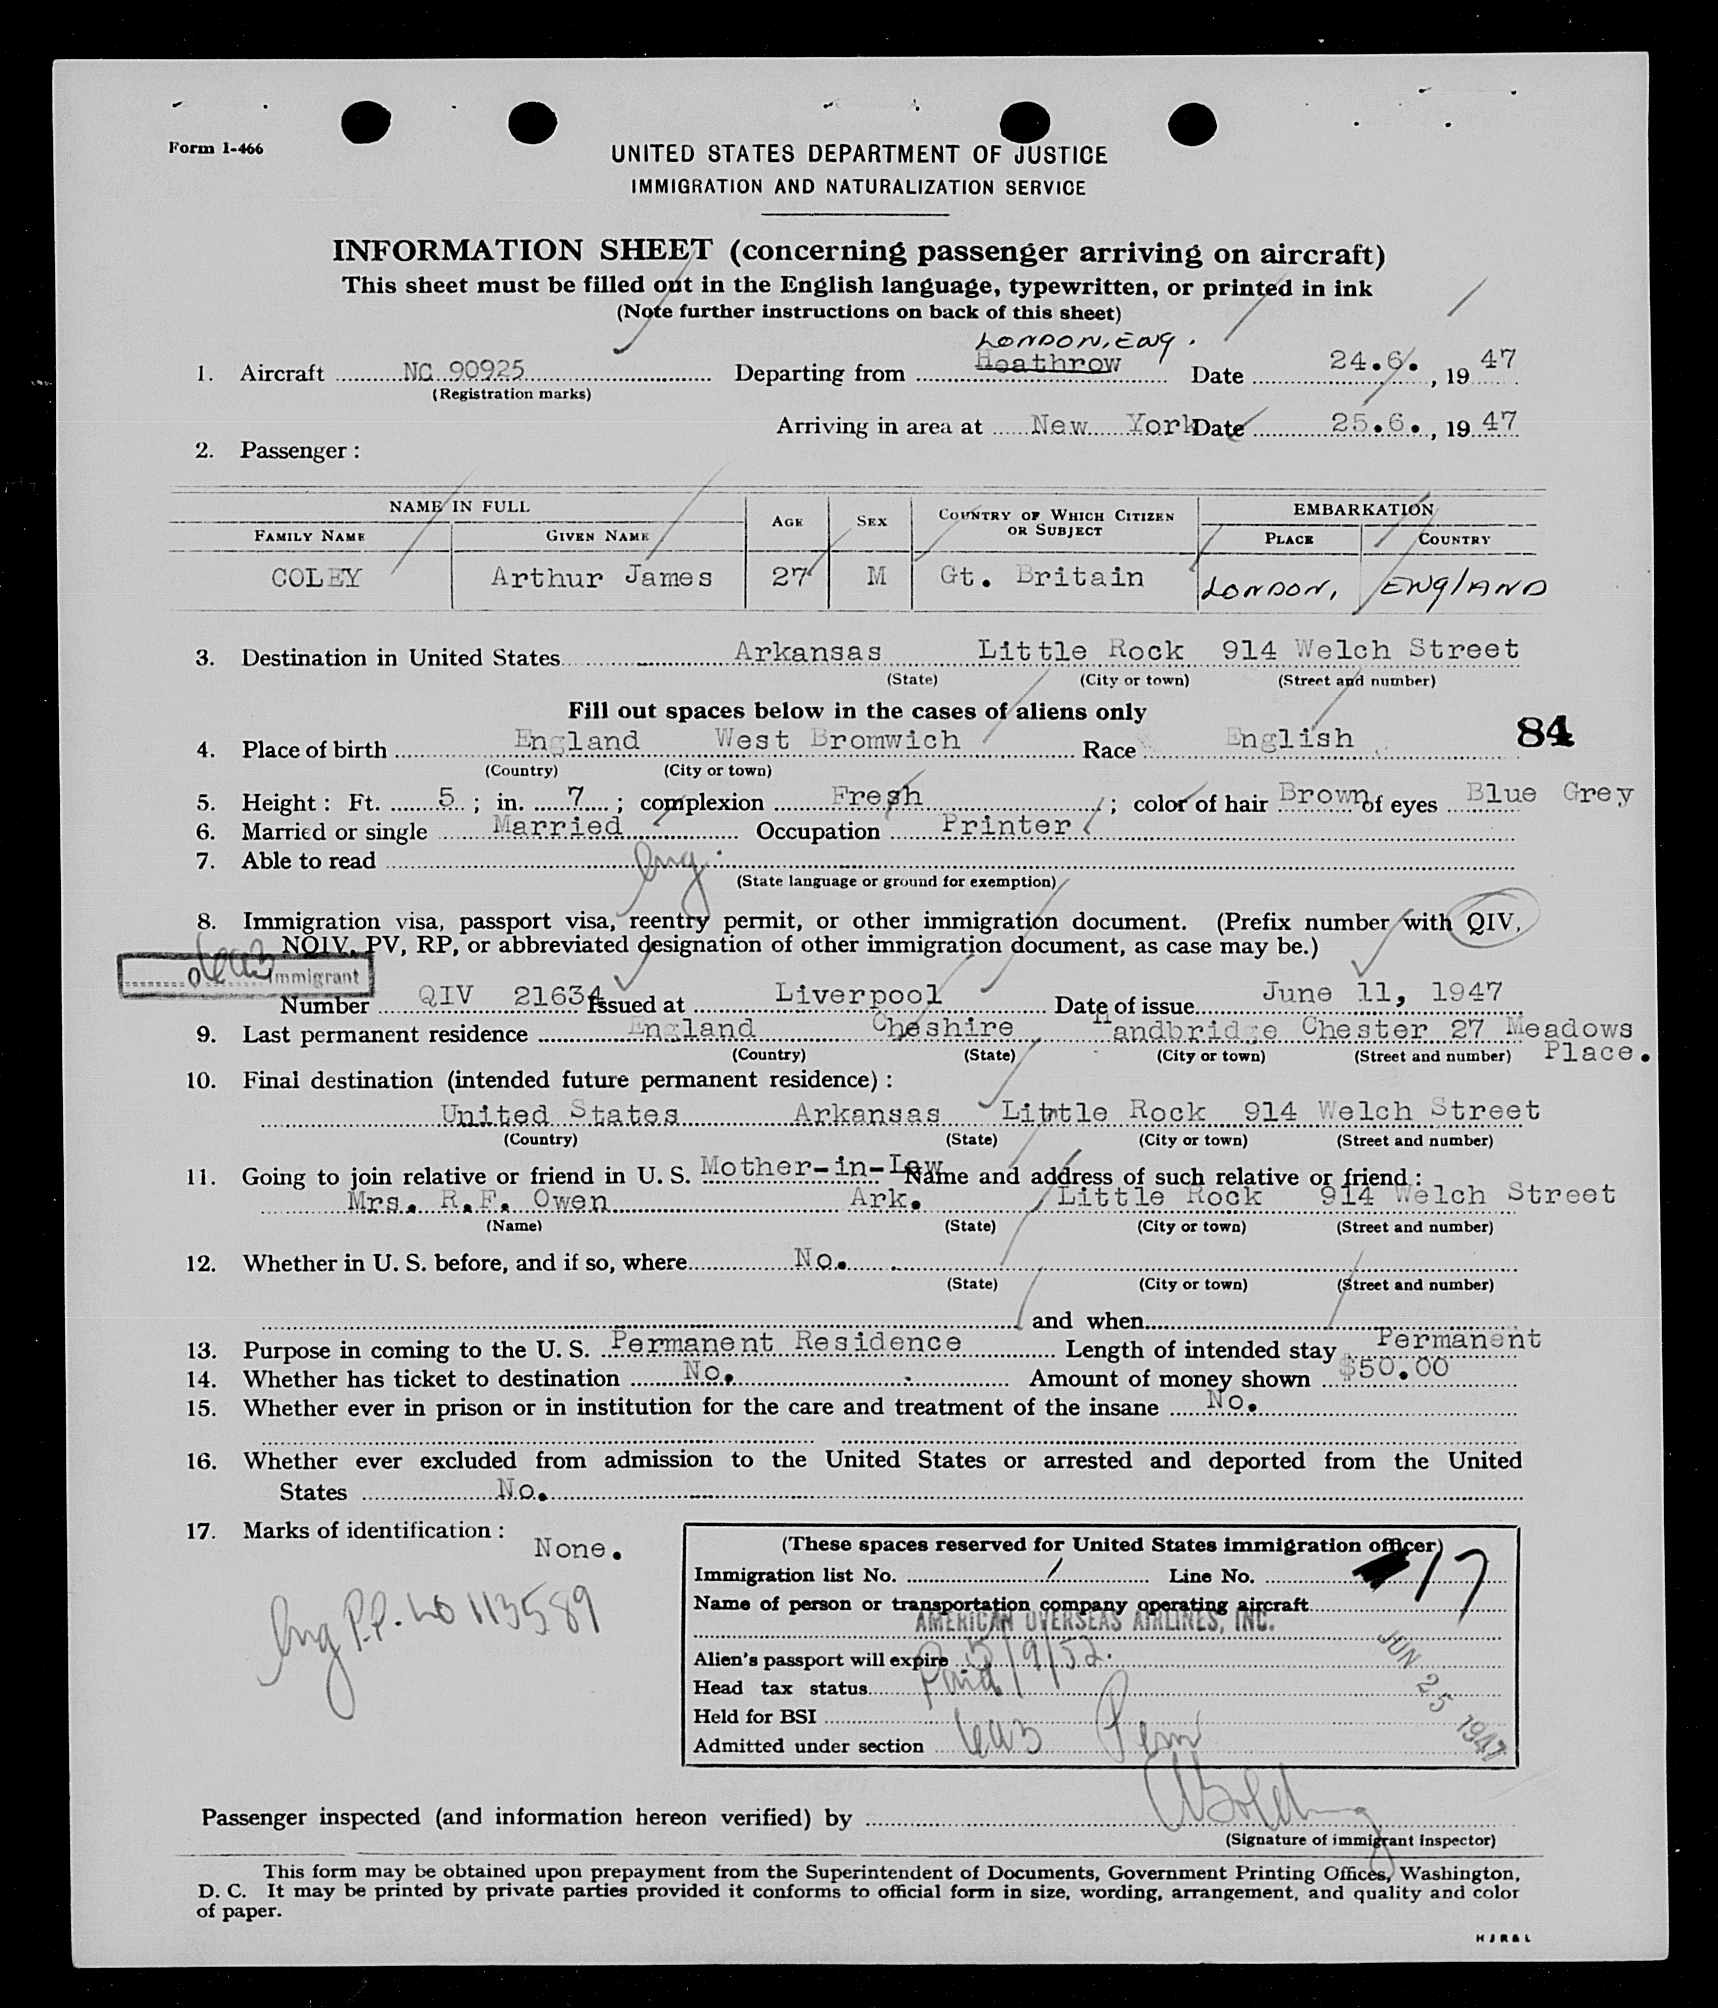 Form 1-466
UNITED STATES DEPARTMENT OF JUSTICE
IMMIGRATION AND NATURALIZATION SERVICE
INFORMATION SHEET (concerning passenger arriving on aircraft)
This sheet must be filled out in the English language, typewritten, or printed in ink
(Note further instructions on back of this sheet)
LONDON, ENG.
1. Aircraft NC 90925 Departing from Heathrow Date 24.6. , 19 47
(Registration marks)
Arriving in area at New York Date 25.6. , 19 47
2. Passenger :
NAME IN FULL AGE SEX COUNTRY OF WHICH CITIZEN OR SUBJECT EMBARKATION
FAMILY NAME GIVEN NAME PLACE COUNTRY
COLEY Arthur James 27 M Gt. Britain LONDON, ENglAND
3. Destination in United States Arkansas Little Rock 914 Welch Street
(State) (City or town) (Street and number)
Fill out spaces below in the cases of aliens only
84
4. Place of birth England West Bromwich Race English
(Country) (City or town)
5. Height : Ft. 5 ; in. 7 ; complexion Fresh ; color of hair Brown of eyes Blue Grey
6. Married or single Married Occupation Printer
7. Able to read Eng.
(State language or ground for exemption)
8. Immigration visa, passport visa, reentry permit, or other immigration document. (Prefix number with QIV,
NQIV, PV, RP, or abbreviated designation of other immigration document, as case may be.)
Immigrant
Number QIV 21634 Issued at Liverpool Date of issue June 11, 1947
9. Last permanent residence England Cheshire Handbridge Chester 27 Meadows
(Country) (State) (City or town) (Street and number) Place.
10. Final destination (intended future permanent residence) :
United States Arkansas Little Rock 914 Welch Street
(Country) (State) (City or town) (Street and number)
11. Going to join relative or friend in U. S. Mother-in-Law Name and address of such relative or friend :
Mrs. R.F. Owen Ark. Little Rock 914 Welch Street
(Name) (State) (City or town) (Street and number)
12. Whether in U. S. before, and if so, where No.
(State) (City or town) (Street and number)
and when
13. Purpose in coming to the U. S. Permanent Residence Length of intended stay Permanent
14. Whether has ticket to destination No. Amount of money shown $50.00
15. Whether ever in prison or in institution for the care and treatment of the insane No.
16. Whether ever excluded from admission to the United States or arrested and deported from the United
States No.
17. Marks of identification :
None.
Eng P.P. No 113589
(These spaces reserved for United States immigration officer)
Immigration list No. Line No. 17
Name of person or transportation company operating aircraft
AMERICAN OVERSEAS AIRLINES, INC.
Alien's passport will expire 5/9/52.
Head tax status Paid
Held for BSI
Admitted under section Perm
JUN 25 1947
Passenger inspected (and information hereon verified) by
(Signature of immigrant inspector)
This form may be obtained upon prepayment from the Superintendent of Documents, Government Printing Offices, Washington,
D. C. It may be printed by private parties provided it conforms to official form in size, wording, arrangement, and quality and color
of paper.
H J R & L